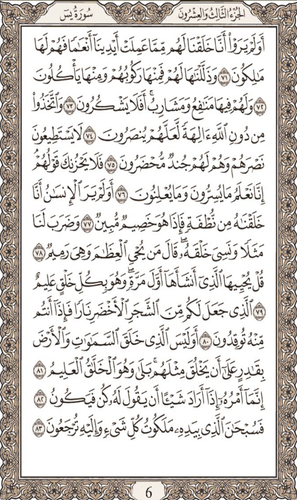 الجُزْءُ الثَّالِثُ وَالعِشْرُونَ
سُورَةُ يسٓ
أَوَلَمْ يَرَوْا۟ أَنَّا خَلَقْنَا لَهُم مِّمَّا عَمِلَتْ أَيْدِينَآ أَنْعَٰمًا فَهُمْ لَهَا
مَٰلِكُونَ ٧١ وَذَلَّلْنَٰهَا لَهُمْ فَمِنْهَا رَكُوبُهُمْ وَمِنْهَا يَأْكُلُونَ
٧٢ وَلَهُمْ فِيهَا مَنَٰفِعُ وَمَشَارِبُ ۖ أَفَلَا يَشْكُرُونَ ٧٣ وَٱتَّخَذُوا۟
مِن دُونِ ٱللَّهِ ءَالِهَةً لَّعَلَّهُمْ يُنصَرُونَ ٧٤ لَا يَسْتَطِيعُونَ
نَصْرَهُمْ وَهُمْ لَهُمْ جُندٌ مُّحْضَرُونَ ٧٥ فَلَا يَحْزُنكَ قَوْلُهُمْ ۘ
إِنَّا نَعْلَمُ مَا يُسِرُّونَ وَمَا يُعْلِنُونَ ٧٦ أَوَلَمْ يَرَ ٱلْإِنسَٰنُ أَنَّا
خَلَقْنَٰهُ مِن نُّطْفَةٍ فَإِذَا هُوَ خَصِيمٌ مُّبِينٌ ٧٧ وَضَرَبَ لَنَا
مَثَلًا وَنَسِىَ خَلْقَهُۥ ۖ قَالَ مَن يُحْىِ ٱلْعِظَٰمَ وَهِىَ رَمِيمٌ ٧٨
قُلْ يُحْيِيهَا ٱلَّذِىٓ أَنشَأَهَآ أَوَّلَ مَرَّةٍ ۖ وَهُوَ بِكُلِّ خَلْقٍ عَلِيمٌ
٧٩ ٱلَّذِى جَعَلَ لَكُم مِّنَ ٱلشَّجَرِ ٱلْأَخْضَرِ نَارًا فَإِذَآ أَنتُم
مِّنْهُ تُوقِدُونَ ٨٠ أَوَلَيْسَ ٱلَّذِى خَلَقَ ٱلسَّمَٰوَٰتِ وَٱلْأَرْضَ
بِقَٰدِرٍ عَلَىٰٓ أَن يَخْلُقَ مِثْلَهُم ۚ بَلَىٰ وَهُوَ ٱلْخَلَّٰقُ ٱلْعَلِيمُ ٨١
إِنَّمَآ أَمْرُهُۥٓ إِذَآ أَرَادَ شَيْـًٔا أَن يَقُولَ لَهُۥ كُن فَيَكُونُ ٨٢
فَسُبْحَٰنَ ٱلَّذِى بِيَدِهِۦ مَلَكُوتُ كُلِّ شَىْءٍ وَإِلَيْهِ تُرْجَعُونَ ٨٣
6